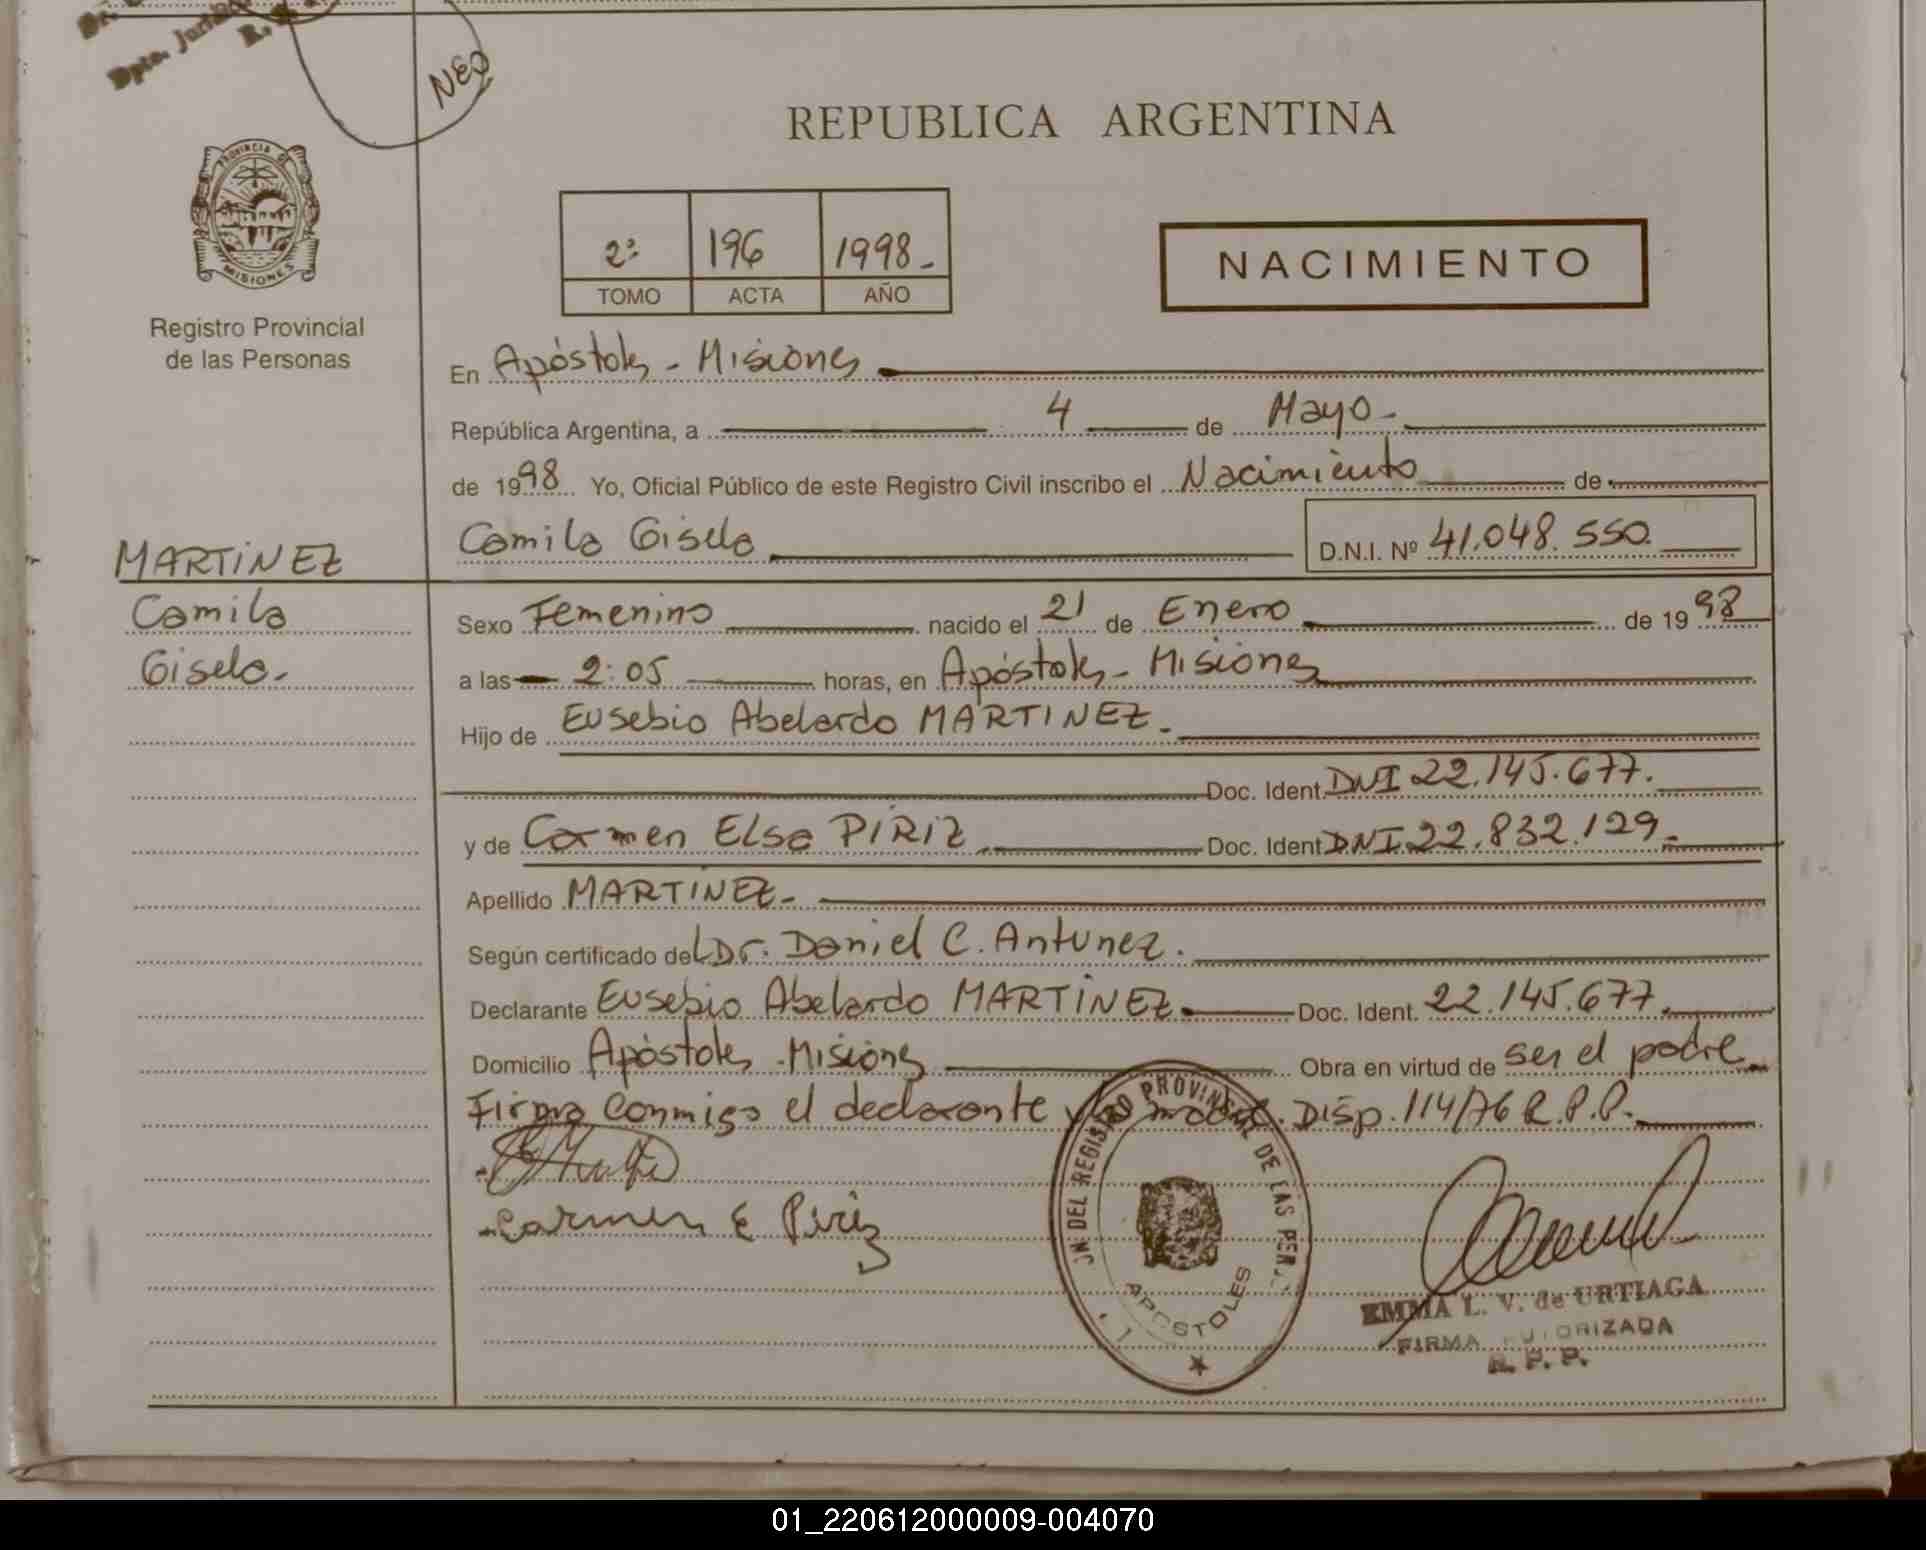 Dpto. Juríd
NEO
REPUBLICA ARGENTINA
PROVINCIA DE
MISIONES
Registro Provincial
de las Personas
2º 196 1998.-
TOMO ACTA AÑO
NACIMIENTO
En Apóstoles - Misiones
República Argentina, a 4 de Mayo -
de 1998 Yo, Oficial Público de este Registro Civil inscribo el Nacimiento de
Camila Gisela D.N.I. Nº 41.048.550
MARTINEZ
Camila
Gisela.-
Sexo Femenino nacido el 21 de Enero de 1998
a las 2:05 horas, en Apóstoles - Misiones
Hijo de Eusebio Abelardo MARTINEZ.-
Doc. Ident. DNI 22.145.677.
y de Carmen Elsa PIRIZ Doc. Ident DNI 22.832.129.
Apellido MARTINEZ.-
Según certificado del Dr. Daniel C. Antunez.
Declarante Eusebio Abelardo MARTINEZ Doc. Ident. 22.145.677.
Domicilio Apóstoles - Misiones Obra en virtud de ser el padre
Firma conmigo el declarante y la madre. Disp. 114/76 R.P.P.
Carmen E Piriz
DEL REGISTRO PROVINCIAL DE LAS PER
APOSTOLES
EMMA L. V. de URTIAGA
FIRMA AUTORIZADA
R. P. P.
01_220612000009-004070